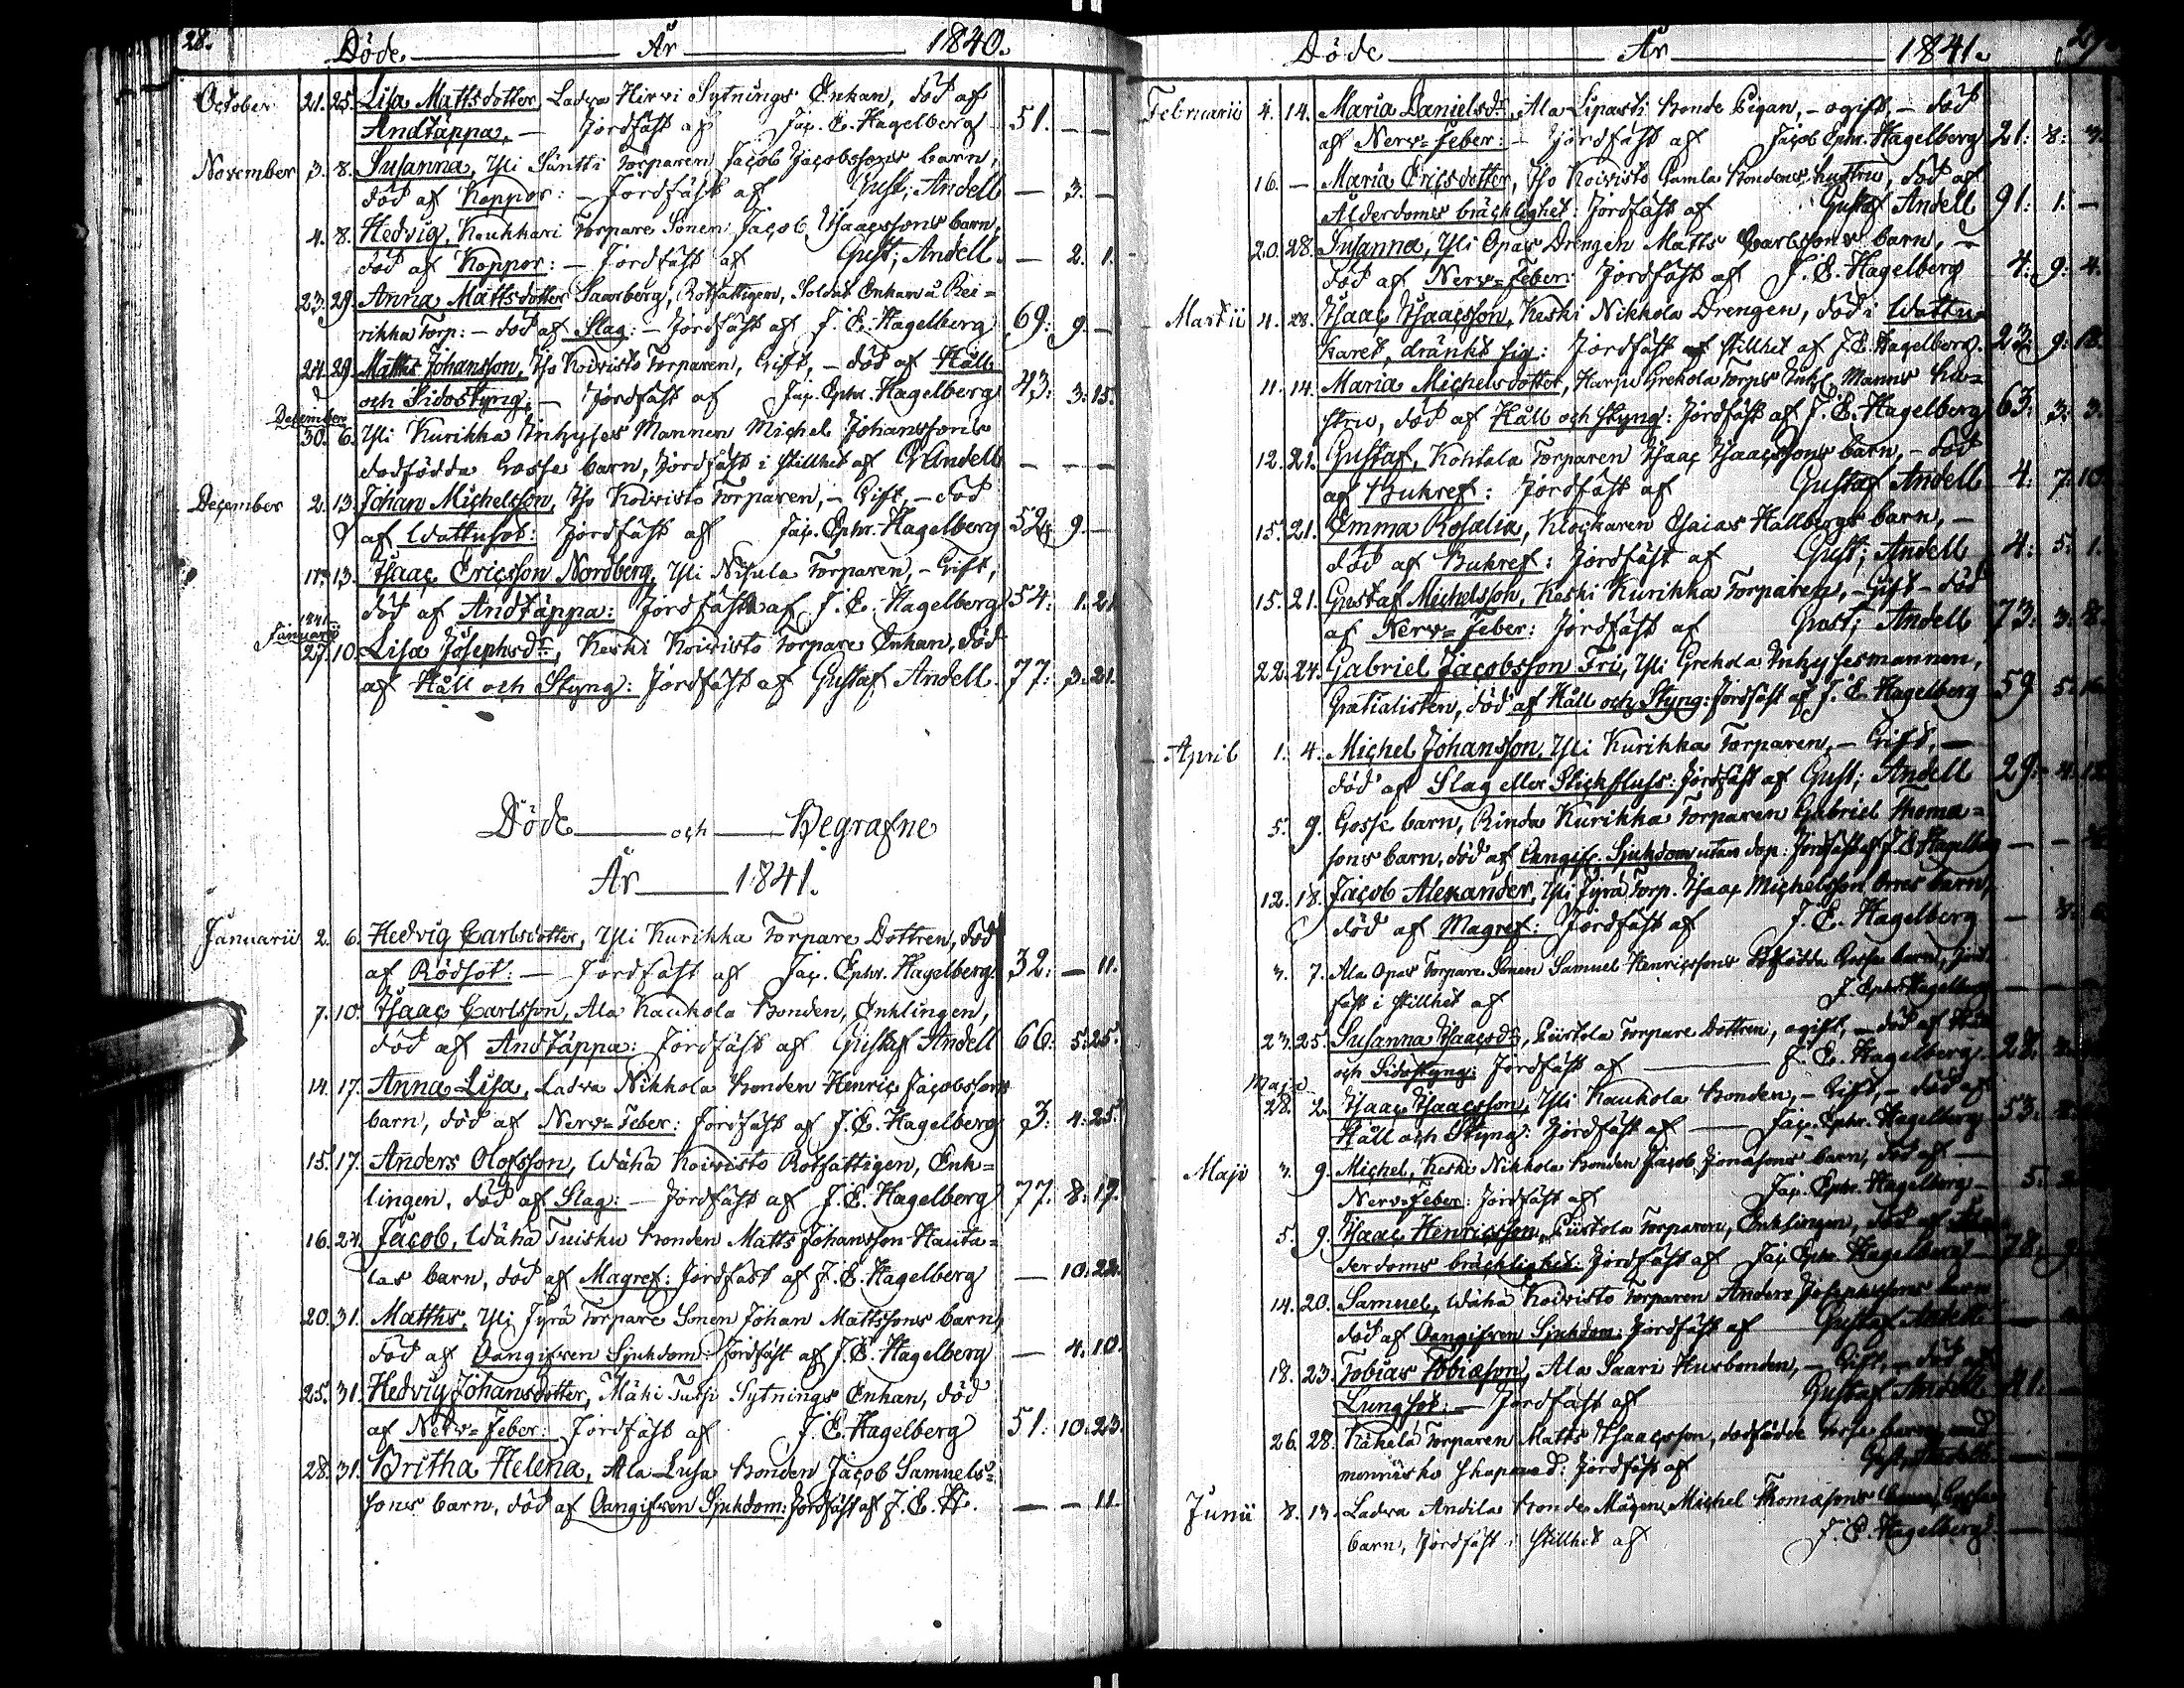 28.
Döde. År 1840.
October 21. 25. Lisa Mattsdotter, Ladva Hirvi Sytnings Enkan, död af
Andtäppa, — Jordfäst af Jac. E. Hagelberg 51. — —
November 3. 8. Susanna, Yli Säntti Torparen Jacob Jacobssons barn,
död af Koppor: — Jordfäst af Gust; Andell — 3. —
4. 8. Hedvig, Koukkari Torpare Sonen Jacob Isaacssons barn,
död af Koppor: — Jordfäst af Gust; Andell. — 2. 1.
23. 29. Anna Mattsdotter Saarberg, Rotfattigen, Soldat Enkan å Rei=
rikka Torp: — död af Slag: — Jordfäst af J. E. Hagelberg 69: 9. —
24. 29. Matths Johansson, Iso Koivisto Torparen, Gift, — död af Håll
och Sidostyng, — Jordfäst af Jac. Ephr. Hagelberg 43: 3: 15.
December
30. 6. Yli Kurikka Inhyses Mannen Michel Johanssons
dödfödda Gosse barn, Jordfäst i stillhet af G. Andell — — —
December 2. 13. Johan Michelsson, Iso Koivisto Torparen, — Gift, — död
af Wattusot: Jordfäst af Jac. Ephr. Hagelberg 52: 9. —
11. 13. Isaac Ericsson Nordberg, Yli Nisula Torparen, — Gift,
död af Andtäppa: Jordfäst af J. E. Hagelberg 54: 1. 21.
1841
Januarii
27. 10. Lisa Josephsdr, Keski Koivisto Torpare Enkan, död
af Håll och Styng: Jordfäst af Gustaf Andell. 77: 3. 21.
Döde och Begrafne
År 1841.
Januarii 2. 6. Hedvig Carlsdotter, Yli Kurikka Torpare Dottren, död
af Rödsot: — Jordfäst af Jac. Ephr. Hagelberg 32: — 11.
7. 10. Isaac Carlsson, Ala Kaukola Bonden, Enklingen,
död af Andtäppa: Jordfäst af Gustaf Andell 66: 5: 25.
14. 17. Anna Lisa, Ladva Nikkola Bonden Henric Jacobssons
barn, död af Nerv=Feber: Jordfäst af J. E. Hagelberg 3: 4: 25.
15. 17. Anders Olofsson, Wäha Koivisto Rotfattigen, Enk=
lingen, död af Slag: — Jordfäst af J. E. Hagelberg 77: 8: 19.
16. 24. Jacob, Wäha Tuisku Bonden Matts Johansson Hauta=
las barn, död af Magref: Jordfäst af J. E. Hagelberg — 10: 22.
20. 31. Matths, Yli Jyrä Torpare Sonen Johan Mattssons barn,
död af Oangifven Sjukdom: Jordfäst af J. E. Hagelberg — 4. 10.
25. 31. Hedvig Johansdotter, Mäki Sytnings Enkan, död
af Nerv=Feber: Jordfäst af J. E. Hagelberg 51: 10: 23.
28. 31. Britha Helena, Ala Lusa Bonden Jacob Samuels=
sons barn, död af Oangifven Sjukdom: Jordfäst af J. E. H. — — 11.
Döde År 1841.
Februarii 4. 14. Maria Danielsdr, Ala Liparti Bonde Pigan, — ogift, — död
af Nerv=Feber: — Jordfäst af Jacob Ephr. Hagelberg 21: 8:
16. — Maria Ericsdotter, Iso Koivisto Gamla Bondens hustru, död af
Ålderdoms bräcklighet: Jordfäst af Gustaf Andell 91: 1. —
20. 28. Susanna, Yli Opas Drengen Matts Carlssons barn, —
död af Nerv=Feber: Jordfäst af J. E. Hagelberg 4: 9: 4.
Martii 4. 28. Isaac Isaacsson, Keski Nikkola Drengen, död i Wattu
karet, dränkt sig: Jordfäst af stillhet af J. E. Hagelberg. 23: 9: 18.
11. 14. Maria Michelsdotter, Harju Grekola Torps Inh. Manns hu=
stru, död af Håll och styng: Jordfäst af J. E. Hagelberg 63: 3: 3.
12. 21. Gustaf, Kohtala Torparen Isaac Isaacssons barn, — död
af Bukref: Jordfäst af Gustaf Andell 4: 7: 10.
15. 21. Emma Rosalia, Klockaren Esaias Hallbergs barn, —
död af Bukref: Jordfäst af Gust; Andell 4: 5: 1.
15. 21. Gustaf Michelsson, Keski Kurikka Torparen, — Gift — död
af Nerv=Feber: Jordfäst af Gust; Andell 73: 3: 8.
22. 24. Gabriel Jacobsson Fri, Yli Grekola Inhysesmannen,
Gratialisten, död af Håll och Styng: Jordfäst af J. E. Hagelberg 59 5:
April 1. 4. Michel Johansson, Yli Kurikka Torparen, — Gift, —
död af Slag eller Stickfluss: Jordfäst af Gust; Andell 29: 4.
5. 9. Gosse barn, Rinda Kurikka Torparen Gabriel Thoma=
sons barn, död af Oangif. Sjukdom utan dop: Jordfäst af J. E. Hagelberg — —
12. 18. Jacob Alexander, Yli Jyrä Torp. Isaac Michelsson Orres barn,
död af Magref: Jordfäst af J. E. Hagelberg —
3. 7. Ala Opas Torpare Sonen Samuel Henricssons dödfödda Gosse barn, Jord
fäst i stillhet af J. Ephr. Hagelberg — —
23. 25. Susanna Isaacsdr, Piirtola Torpare Dottren, ogift, — död af Håll
och Sidostyng: Jordfäst af — J. E. Hagelberg 28.
Maji
28. 2. Isaac Isaacsson, Yli Kaukola Bonden, — Gift, — död af
Håll och Styng: Jordfäst af — Jac. Ephr. Hagelberg 53.
Maji 3. 9. Michel, Keski Nikkola Bonden Jacob Jonasons barn, död af —
Nerv=Feber: Jordfäst af Jac. Ephr. Hagelberg — 5.
5. 9. Isaac Henricsson, Piirtola Torparen, Enklingen, död af Ål
derdoms bräcklighet: Jordfäst af Jac. Ephr. Hagelberg — 78.
14. 20. Samuel, Wäha Koivisto Torparen Anders Josephssons barn
död af Oangifven Sjukdom: Jordfäst af Gustaf Andell —
18. 23. Tobias Tobiasson, Ala Saari Husbonden, — Gift, — död af
Lungsot: — Jordfäst af Gustaf Andell
26. 28. Kähelä Torparen Matts Isaacsson, dödfödde Gosse barn,
menniska skapnad: Jordfäst af Gust; Andell — —
Junii 8. 13. Ladva Andila Bonde Mågen Michel Thomasons Gosse
barn, Jordfäst i stillhet af J. E. Hagelberg. — —